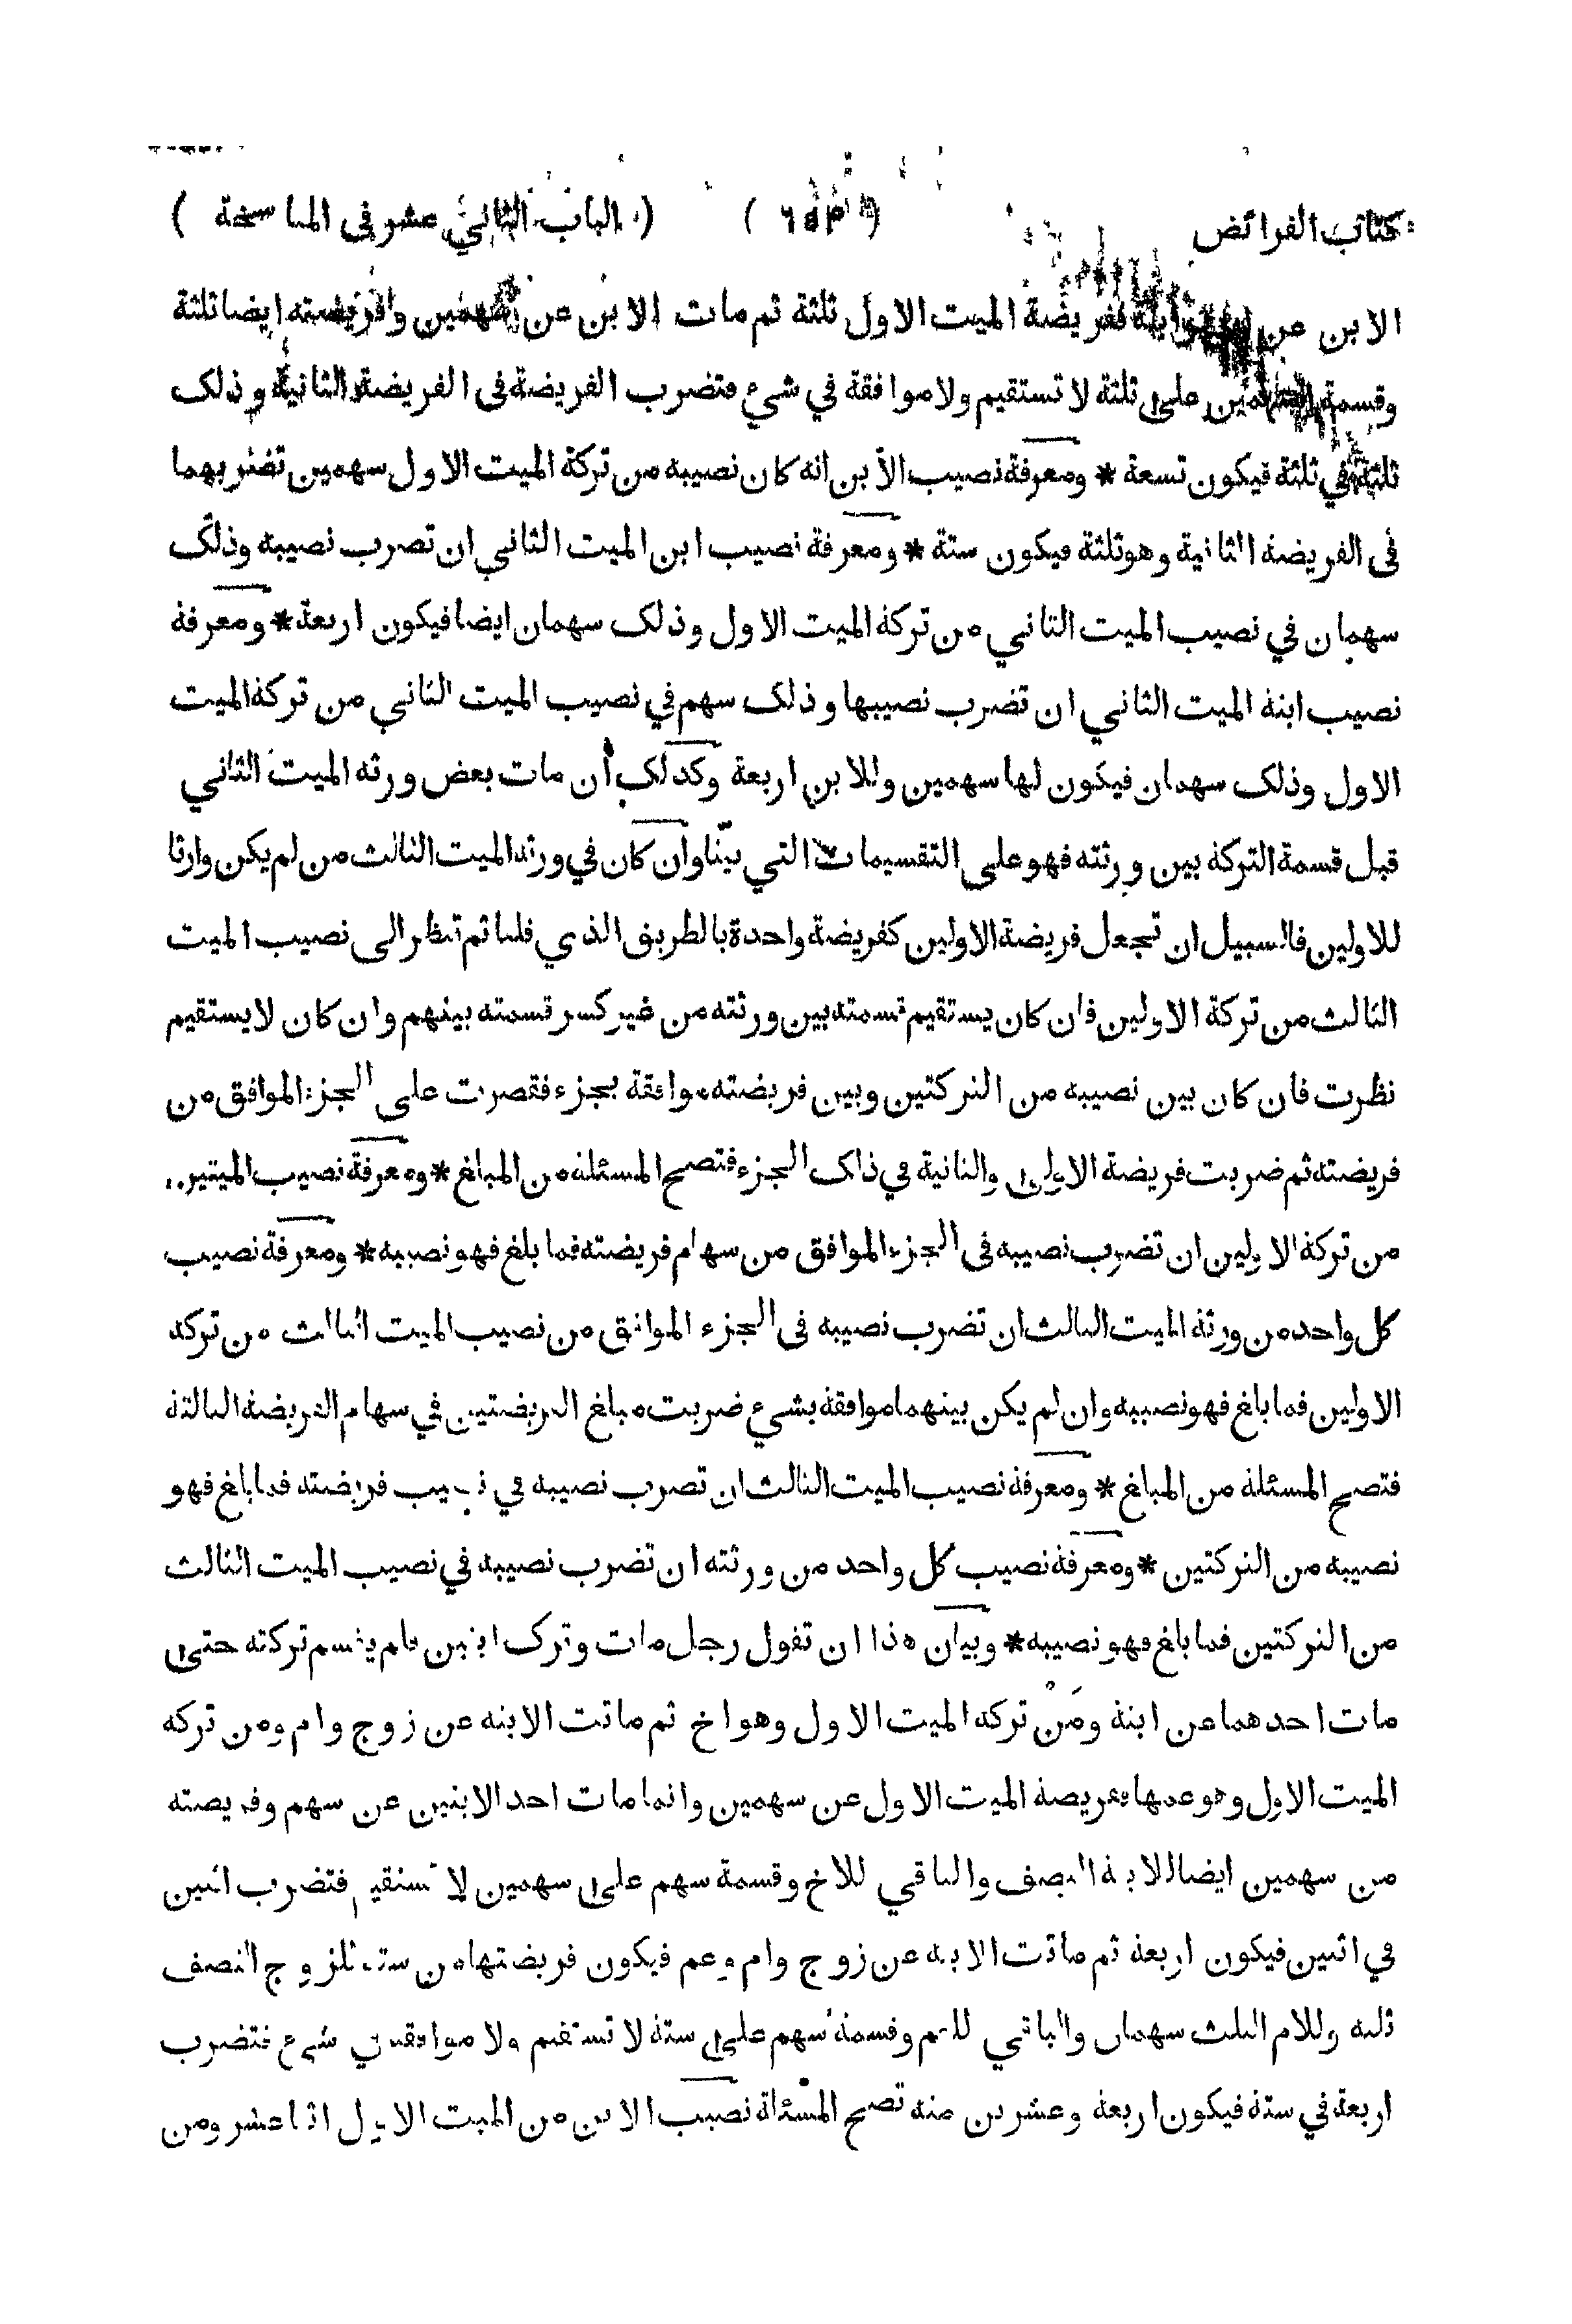 كتاب الفرائض ( ) ( الباب الثاني عشر في المناسخة )
الابن عن وابنة ففريضة الميت الاول ثلثة ثم مات الابن عن سهمين وفريضته ايضا ثلثة
وقسمة السهمين على ثلثة لا تستقيم ولا موافقة في شيء فتضرب الفريضة في الفريضة الثانية وذلك
ثلثة في ثلثة فيكون تسعة * ومعرفة نصيب الابن انه كان نصيبه من تركة الميت الاول سهمين تضربهما
في الفريضة الثانية وهو ثلثة فيكون ستة * ومعرفة نصيب ابن الميت الثاني ان تضرب نصيبه وذلك
سهمان في نصيب الميت الثاني من تركة الميت الاول وذلك سهمان ايضا فيكون اربعة * ومعرفة
نصيب ابنة الميت الثاني ان تضرب نصيبها وذلك سهم في نصيب الميت الثاني من تركة الميت
الاول وذلك سهمان فيكون لها سهمين وللابن اربعة وكذلك ان مات بعض ورثة الميت الثاني
قبل قسمة التركة بين ورثته فهو على التقسيمات التي بيّنا وان كان في ورثة الميت الثالث من لم يكن وارثا
للاولين فالسبيل ان تجعل فريضة الاولين كفريضة واحدة بالطريق الذي قلنا ثم تنظر الى نصيب الميت
الثالث من تركة الاولين فان كان يستقيم قسمته بين ورثته من غير كسر قسمته بينهم وان كان لا يستقيم
نظرت فان كان بين نصيبه من التركتين وبين فريضته موافقة بجزء فقصرت على الجزء الموافق من
فريضته ثم ضربت فريضة الاولى والثانية في ذلك الجزء فتصح المسئلة من المبلغ * ومعرفة نصيب الميتين
من تركة الاولين ان تضرب نصيبه في الجزء الموافق من سهام فريضته فما بلغ فهو نصيبه * ومعرفة نصيب
كل واحد من ورثة الميت الثالث ان تضرب نصيبه في الجزء الموافق من نصيب الميت الثالث من تركة
الاولين فما بلغ فهو نصيبه وان لم يكن بينهما موافقة بشيء ضربت مبلغ الفريضتين في سهام الفريضة الثالثة
فتصح المسئلة من المبلغ * ومعرفة نصيب الميت الثالث ان تضرب نصيبه في فريضته فما بلغ فهو
نصيبه من التركتين * ومعرفة نصيب كل واحد من ورثته ان تضرب نصيبه في نصيب الميت الثالث
من التركتين فما بلغ فهو نصيبه * وبيان هذا ان تقول رجل مات وترك ابنين فلم يقسم تركته حتى
مات احدهما عن ابنة ومَنْ تركه الميت الاول وهو اخ ثم ماتت الابنة عن زوج وام ومن تركه
الميت الاول وهو عمها ففريضة الميت الاول عن سهمين وانما مات احد الابنين عن سهم وفريضته
من سهمين ايضا للابنة النصف والباقي للاخ وقسمة سهم على سهمين لا تستقيم فتضرب اثنين
في اثنين فيكون اربعة ثم ماتت الابنة عن زوج وام وعم فيكون فريضتها من ستة للزوج النصف
ثلثه وللام الثلث سهمان والباقي للعم وقسمة سهم على ستة لا تستقيم ولا موافقة في شيء فتضرب
اربعة في ستة فيكون اربعة وعشرين منه تصح المسئلة نصيب الابن من الميت الاول اثنا عشر ومن